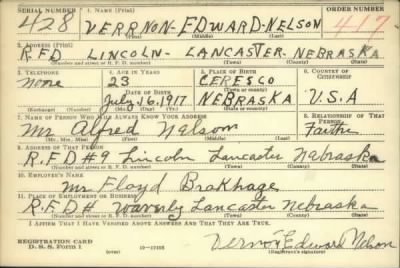 SERIAL NUMBER 1. NAME (Print) ORDER NUMBER
428 VERRNON-EDWARD-NELSON 417
2. ADDRESS (Print)
R.F.D LINCOLN- LANCASTER-NEBRASKA
(Number and street or R. F. D. number) (Town) (County) (State)
3. TELEPHONE 4. AGE IN YEARS 5. PLACE OF BIRTH 6. COUNTRY OF CITIZENSHIP
none 23 CERESCO
DATE OF BIRTH (Town or county)
July 16.1917 NEBRASKA U.S.A
(Exchange) (Number) (Mo.) (Day) (Yr.) (State or country)
7. NAME OF PERSON WHO WILL ALWAYS KNOW YOUR ADDRESS 8. RELATIONSHIP OF THAT PERSON
Mr Alfred Nelson
(Mr., Mrs., Miss) (First) (Middle) (Last)
9. ADDRESS OF THAT PERSON
R.F.D #9 Lincoln Lancaster Nabraska
(Number and street or R. F. D. number) (Town) (County) (State)
10. EMPLOYER'S NAME
Mr Floyd Brakhage
11. PLACE OF EMPLOYMENT OR BUSINESS
R.F.D # Waverly Lancaster Nebraska
(Number and street or R. F. D. number) (Town) (County) (State)
I AFFIRM THAT I HAVE VERIFIED ABOVE ANSWERS AND THAT THEY ARE TRUE.
REGISTRATION CARD
D. S. S. FORM 1 (over) Vernon Edward Nelson
(Registrant's signature)